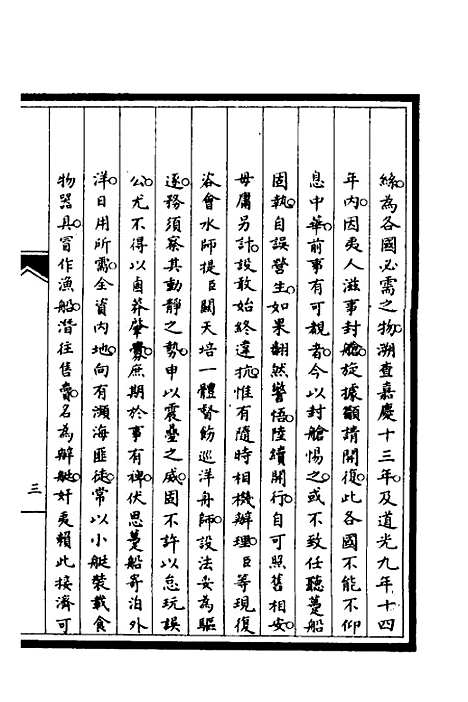 絲為各國必需之物溯查嘉慶十三年及道光九年十四
年內因夷人滋事封艙旋據籲請開復此各國不能不仰
息中華前事有可覩者今以封艙惕之或不致任聽躉船
固執自誤營生如果翻然警悟陸續開行自可照舊相安
毋庸另計設敢始終違抗惟有隨時相機辦理臣等現復
咨會水師提臣關天培一體督飭巡洋舟師設法妥為驅
逐務須察其動靜之勢申以震疊之威固不許以怠玩誤
公尤不得以鹵莽肇釁庶期於事有裨伏思躉船寄泊外
洋日用所需全資內地向有瀕海匪徒常以小艇裝載食
物器具冒作漁船潛往售賣名為辦艇奸夷賴此接濟可
三